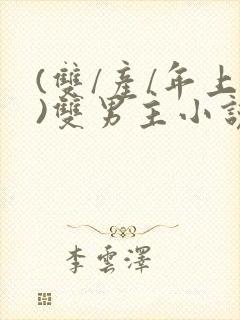 (雙/產/年上
)雙男主小說
李雲澤